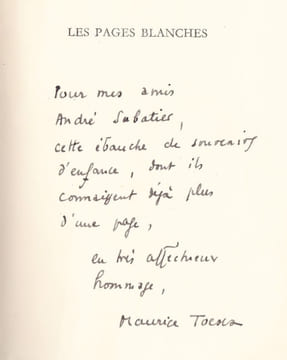 LES PAGES BLANCHES
Pour mes amis
André Sabatier,
cette ébauche de souvenirs
d'enfance, dont ils
connaissent déjà plus
d'une page,
en très affectueux
hommage,
Maurice Toesca